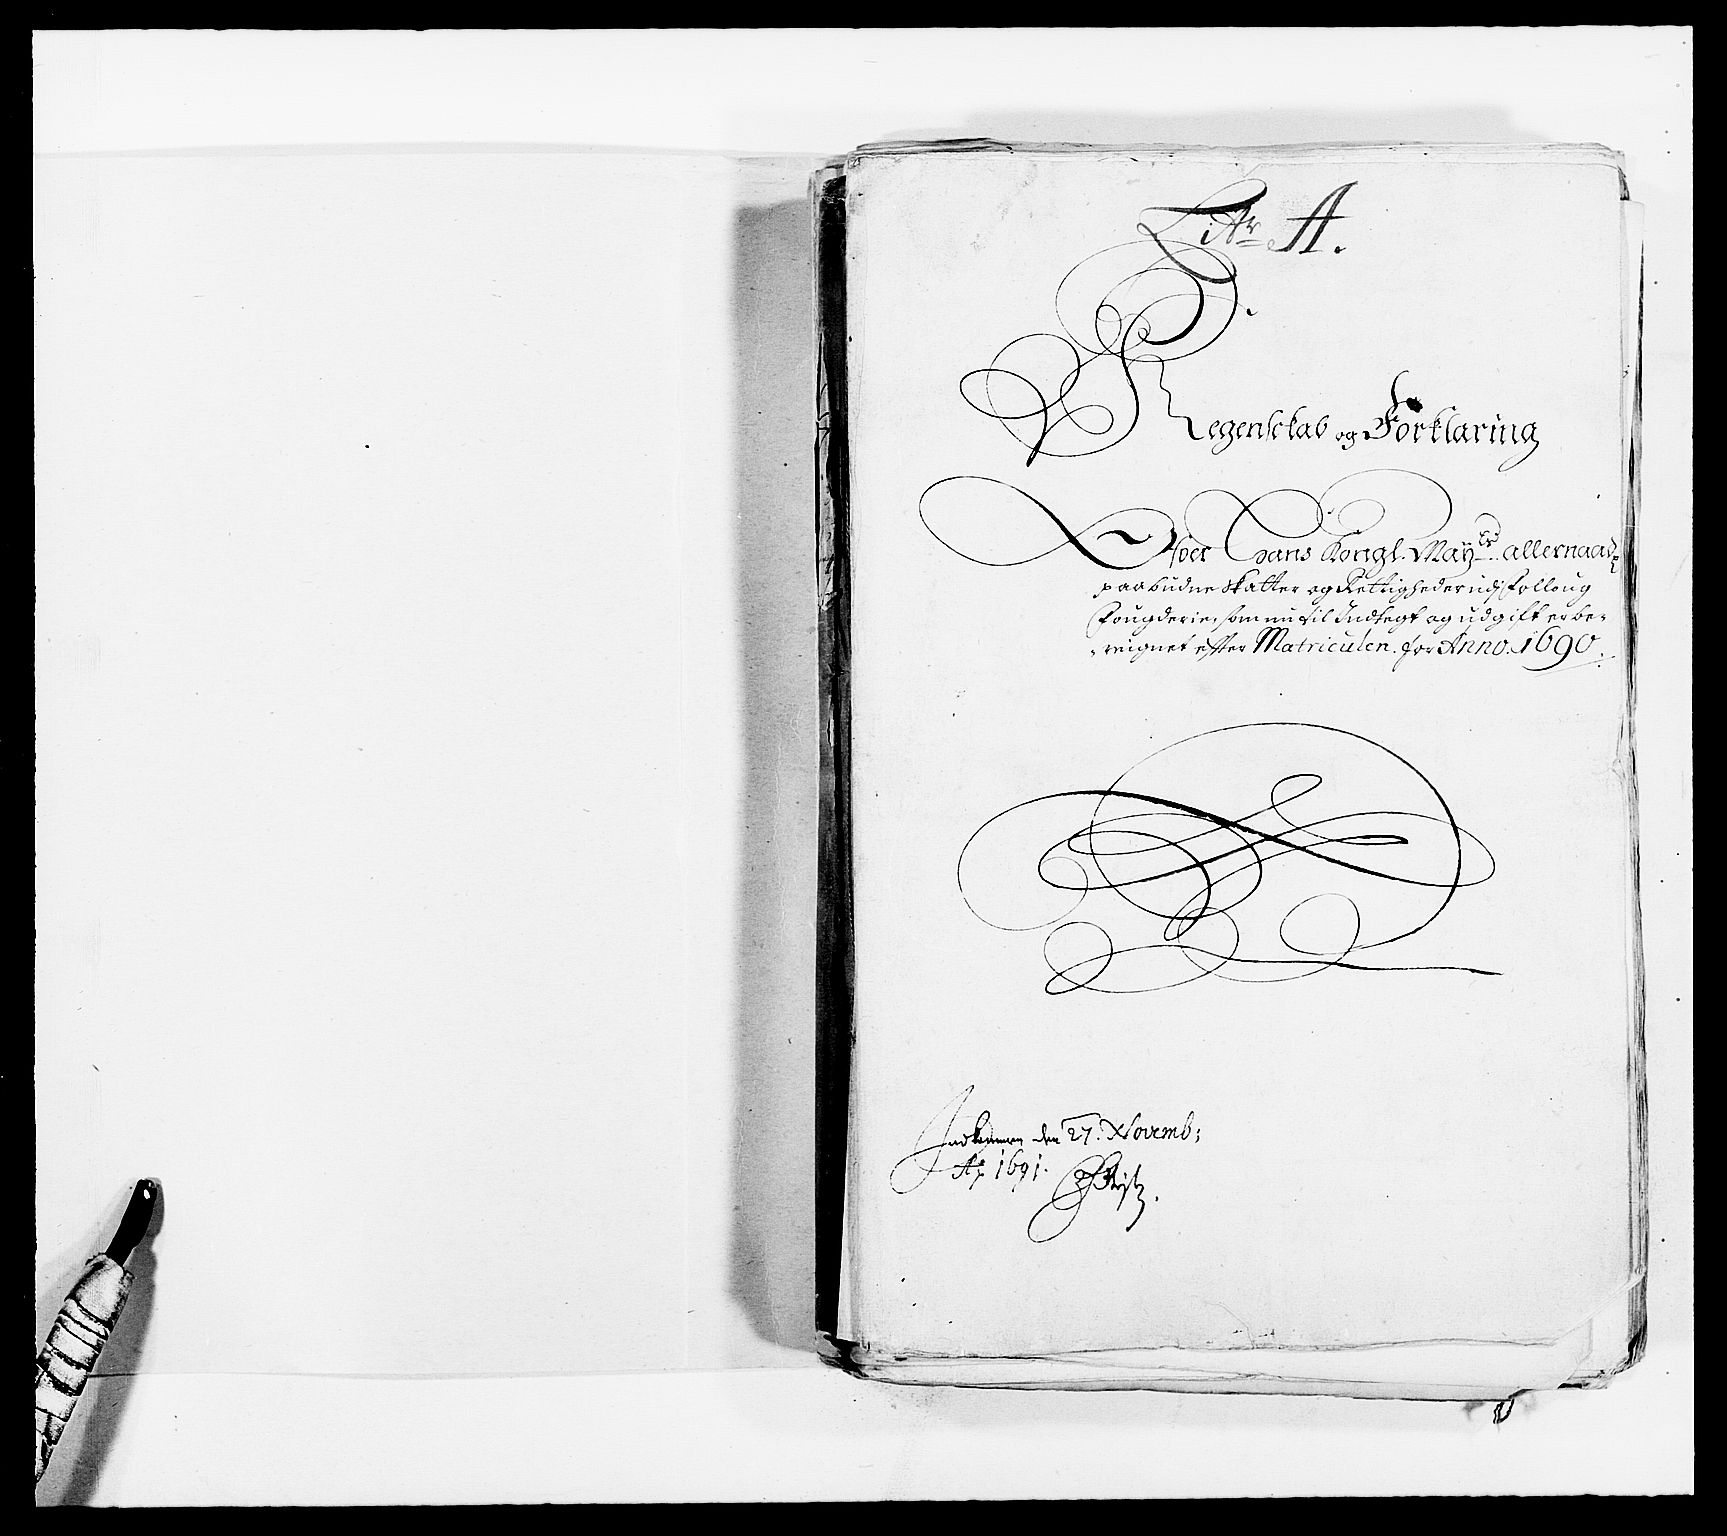 Litr A.
Regenschab og Forklaring
Ofver Hans Kongl. Maÿts allernaad:
paabudne Skatter og Rettigheder udj Folloug
Fougderie, som nu til Indtegt og udgift er be-
-reignet efter Matriculen. for Anno. 1690.
Indkommen den 27. Novemb;
Ao 1691.